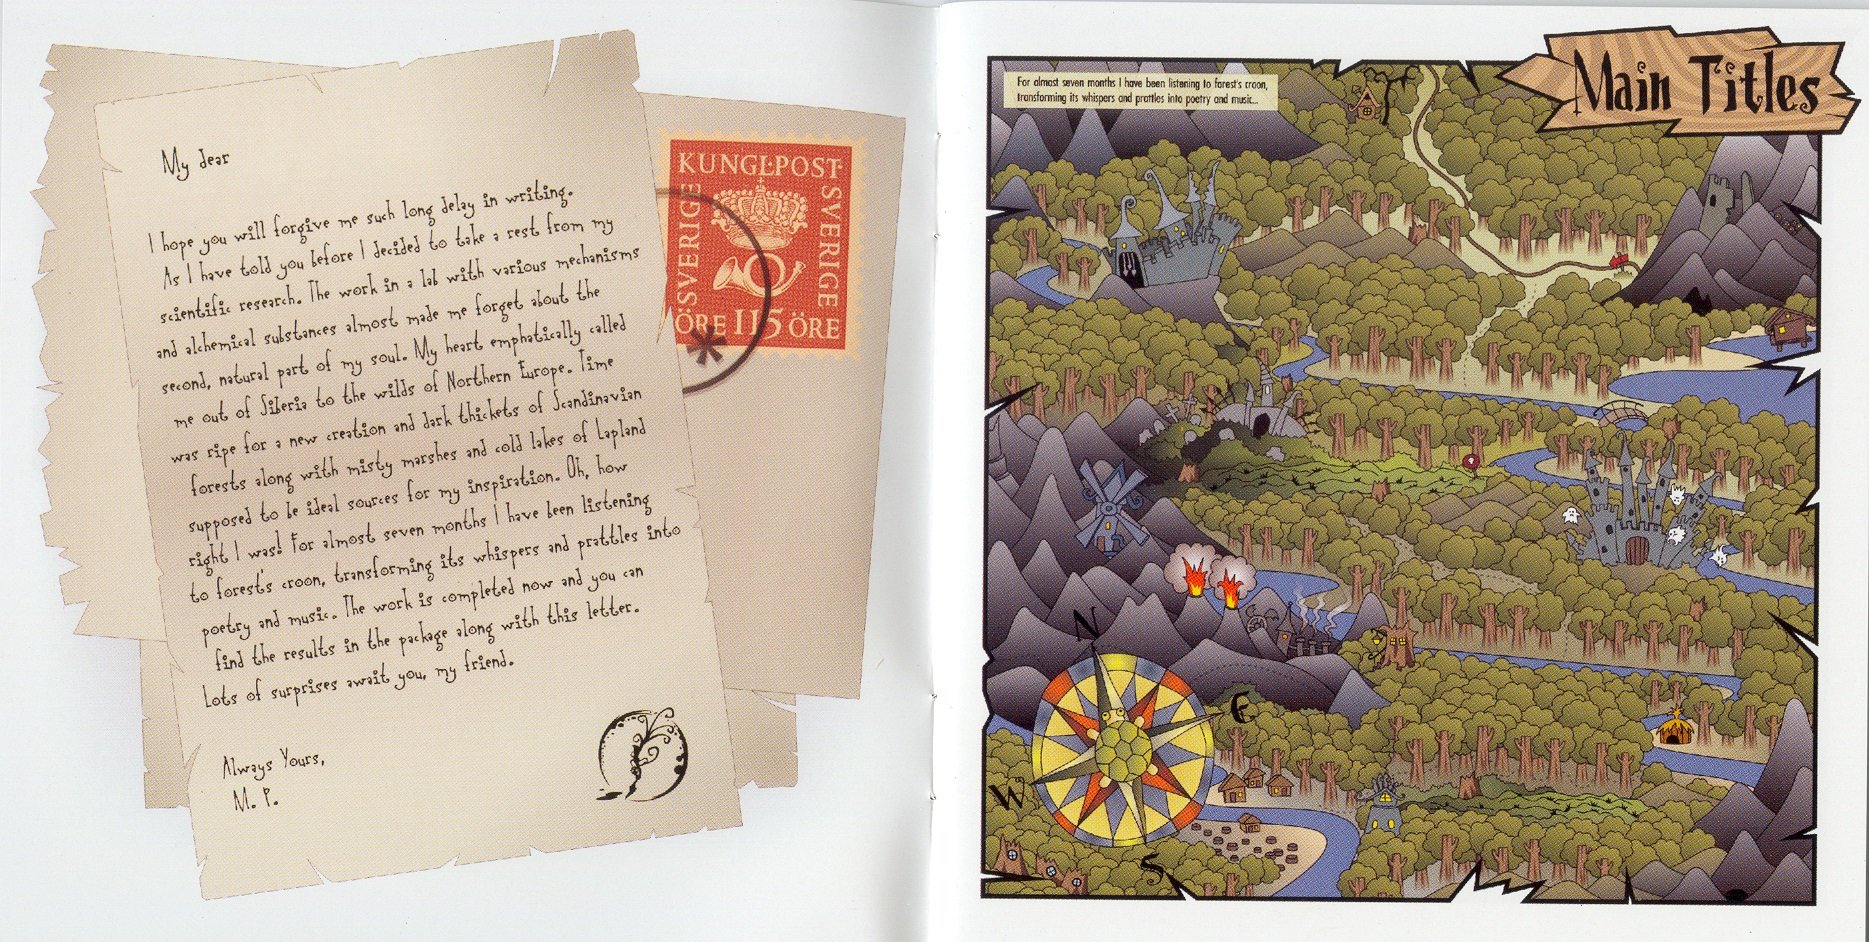 My dear
I hope you will forgive me such long delay in writing.
As I have told you before I decided to take a rest from my
scientific research. The work in a lab with various mechanisms
and alchemical substances almost made me forget about the
second, natural part of my soul. My heart emphatically called
me out of Siberia to the wilds of Northern Europe. Time
was ripe for a new creation and dark thickets of Scandinavian
forests along with misty marshes and cold lakes of Lapland
supposed to be ideal sources for my inspiration. Oh, how
right I was! For almost seven months I have been listening
to forest's croon, transforming its whispers and prattles into
poetry and music. The work is completed now and you can
find the results in the package along with this letter.
Lots of surprises await you, my friend.
Always Yours,
M. P.
KUNGL·POST
SVERIGE
SVERIGE
ÖRE 115 ÖRE
Main Titles
For almost seven months I have been listening to forest's croon,
transforming its whispers and prattles into poetry and music...
N
E
W
S